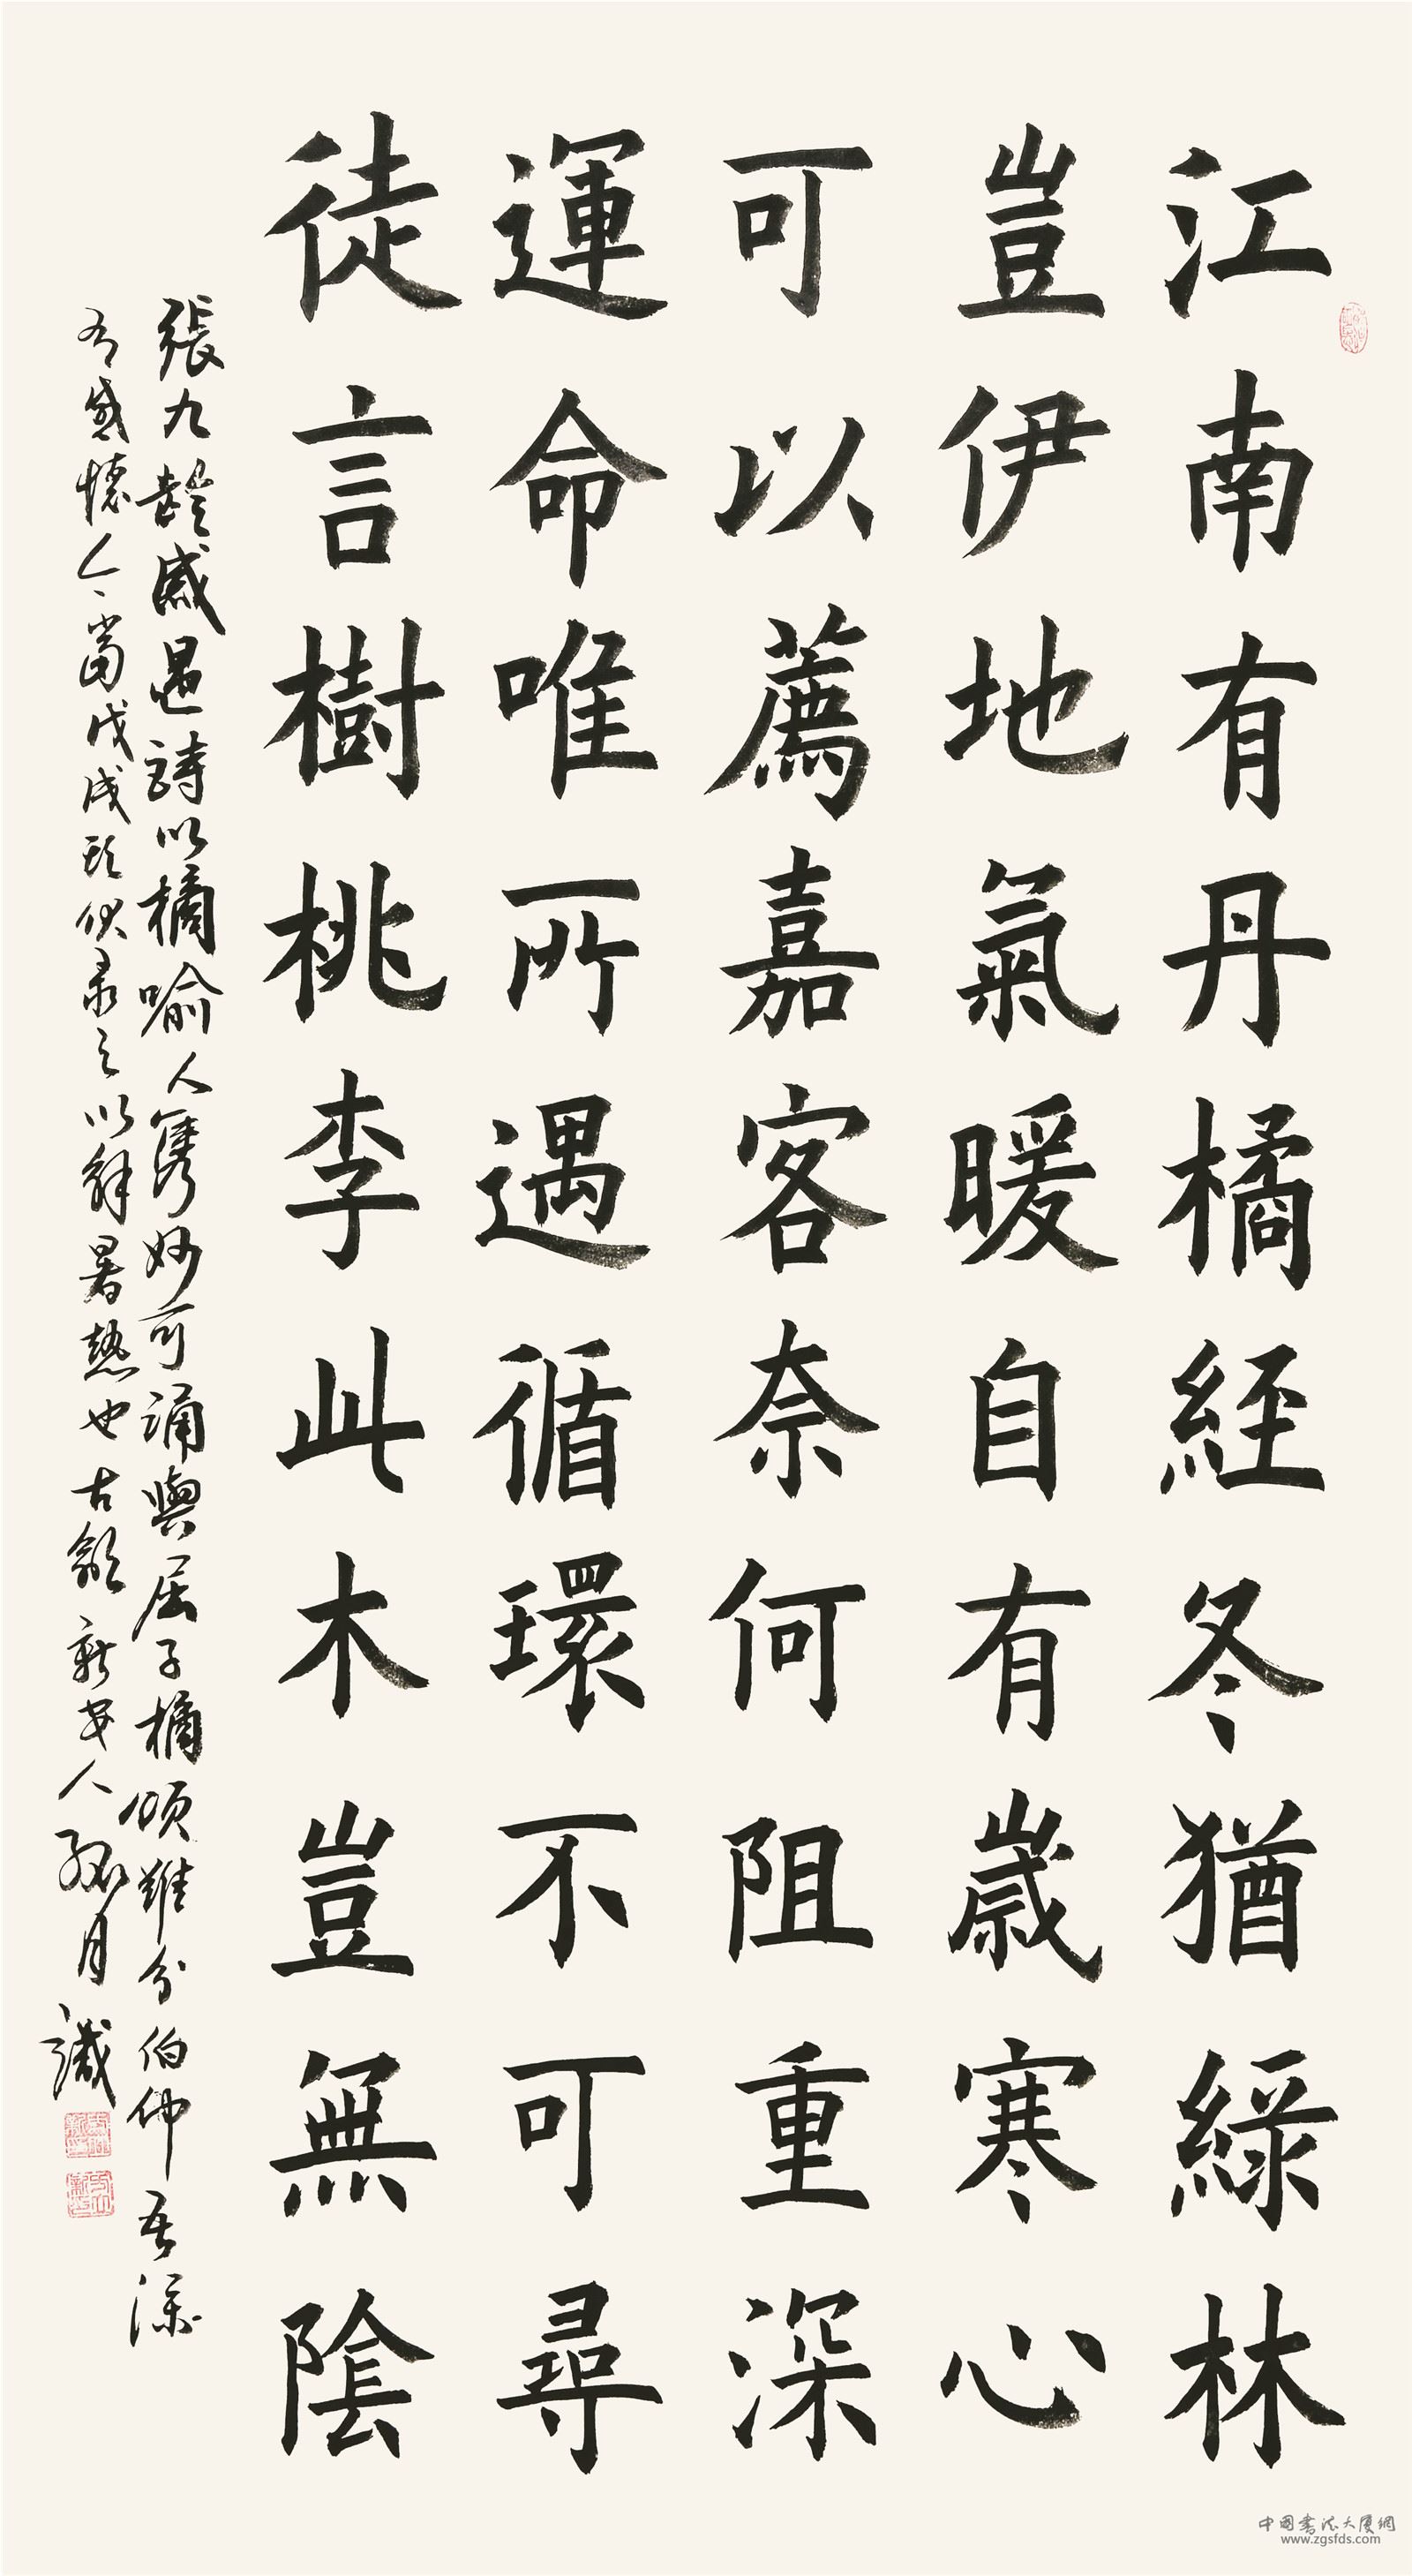 江南有丹橘經冬猶綠林
豈伊地氣暖自有歲寒心
可以薦嘉客奈何阻重深
運命唯所遇循環不可尋
徒言樹桃李此木豈無陰
張九齡感遇詩以橘喻人雋妙可誦與屈子橘頌難分伯仲吾深
有感懷今當戊戌頭伏录之以解暑熱也古歙新安人月識
中國書法大廈網
www.zgsfds.com